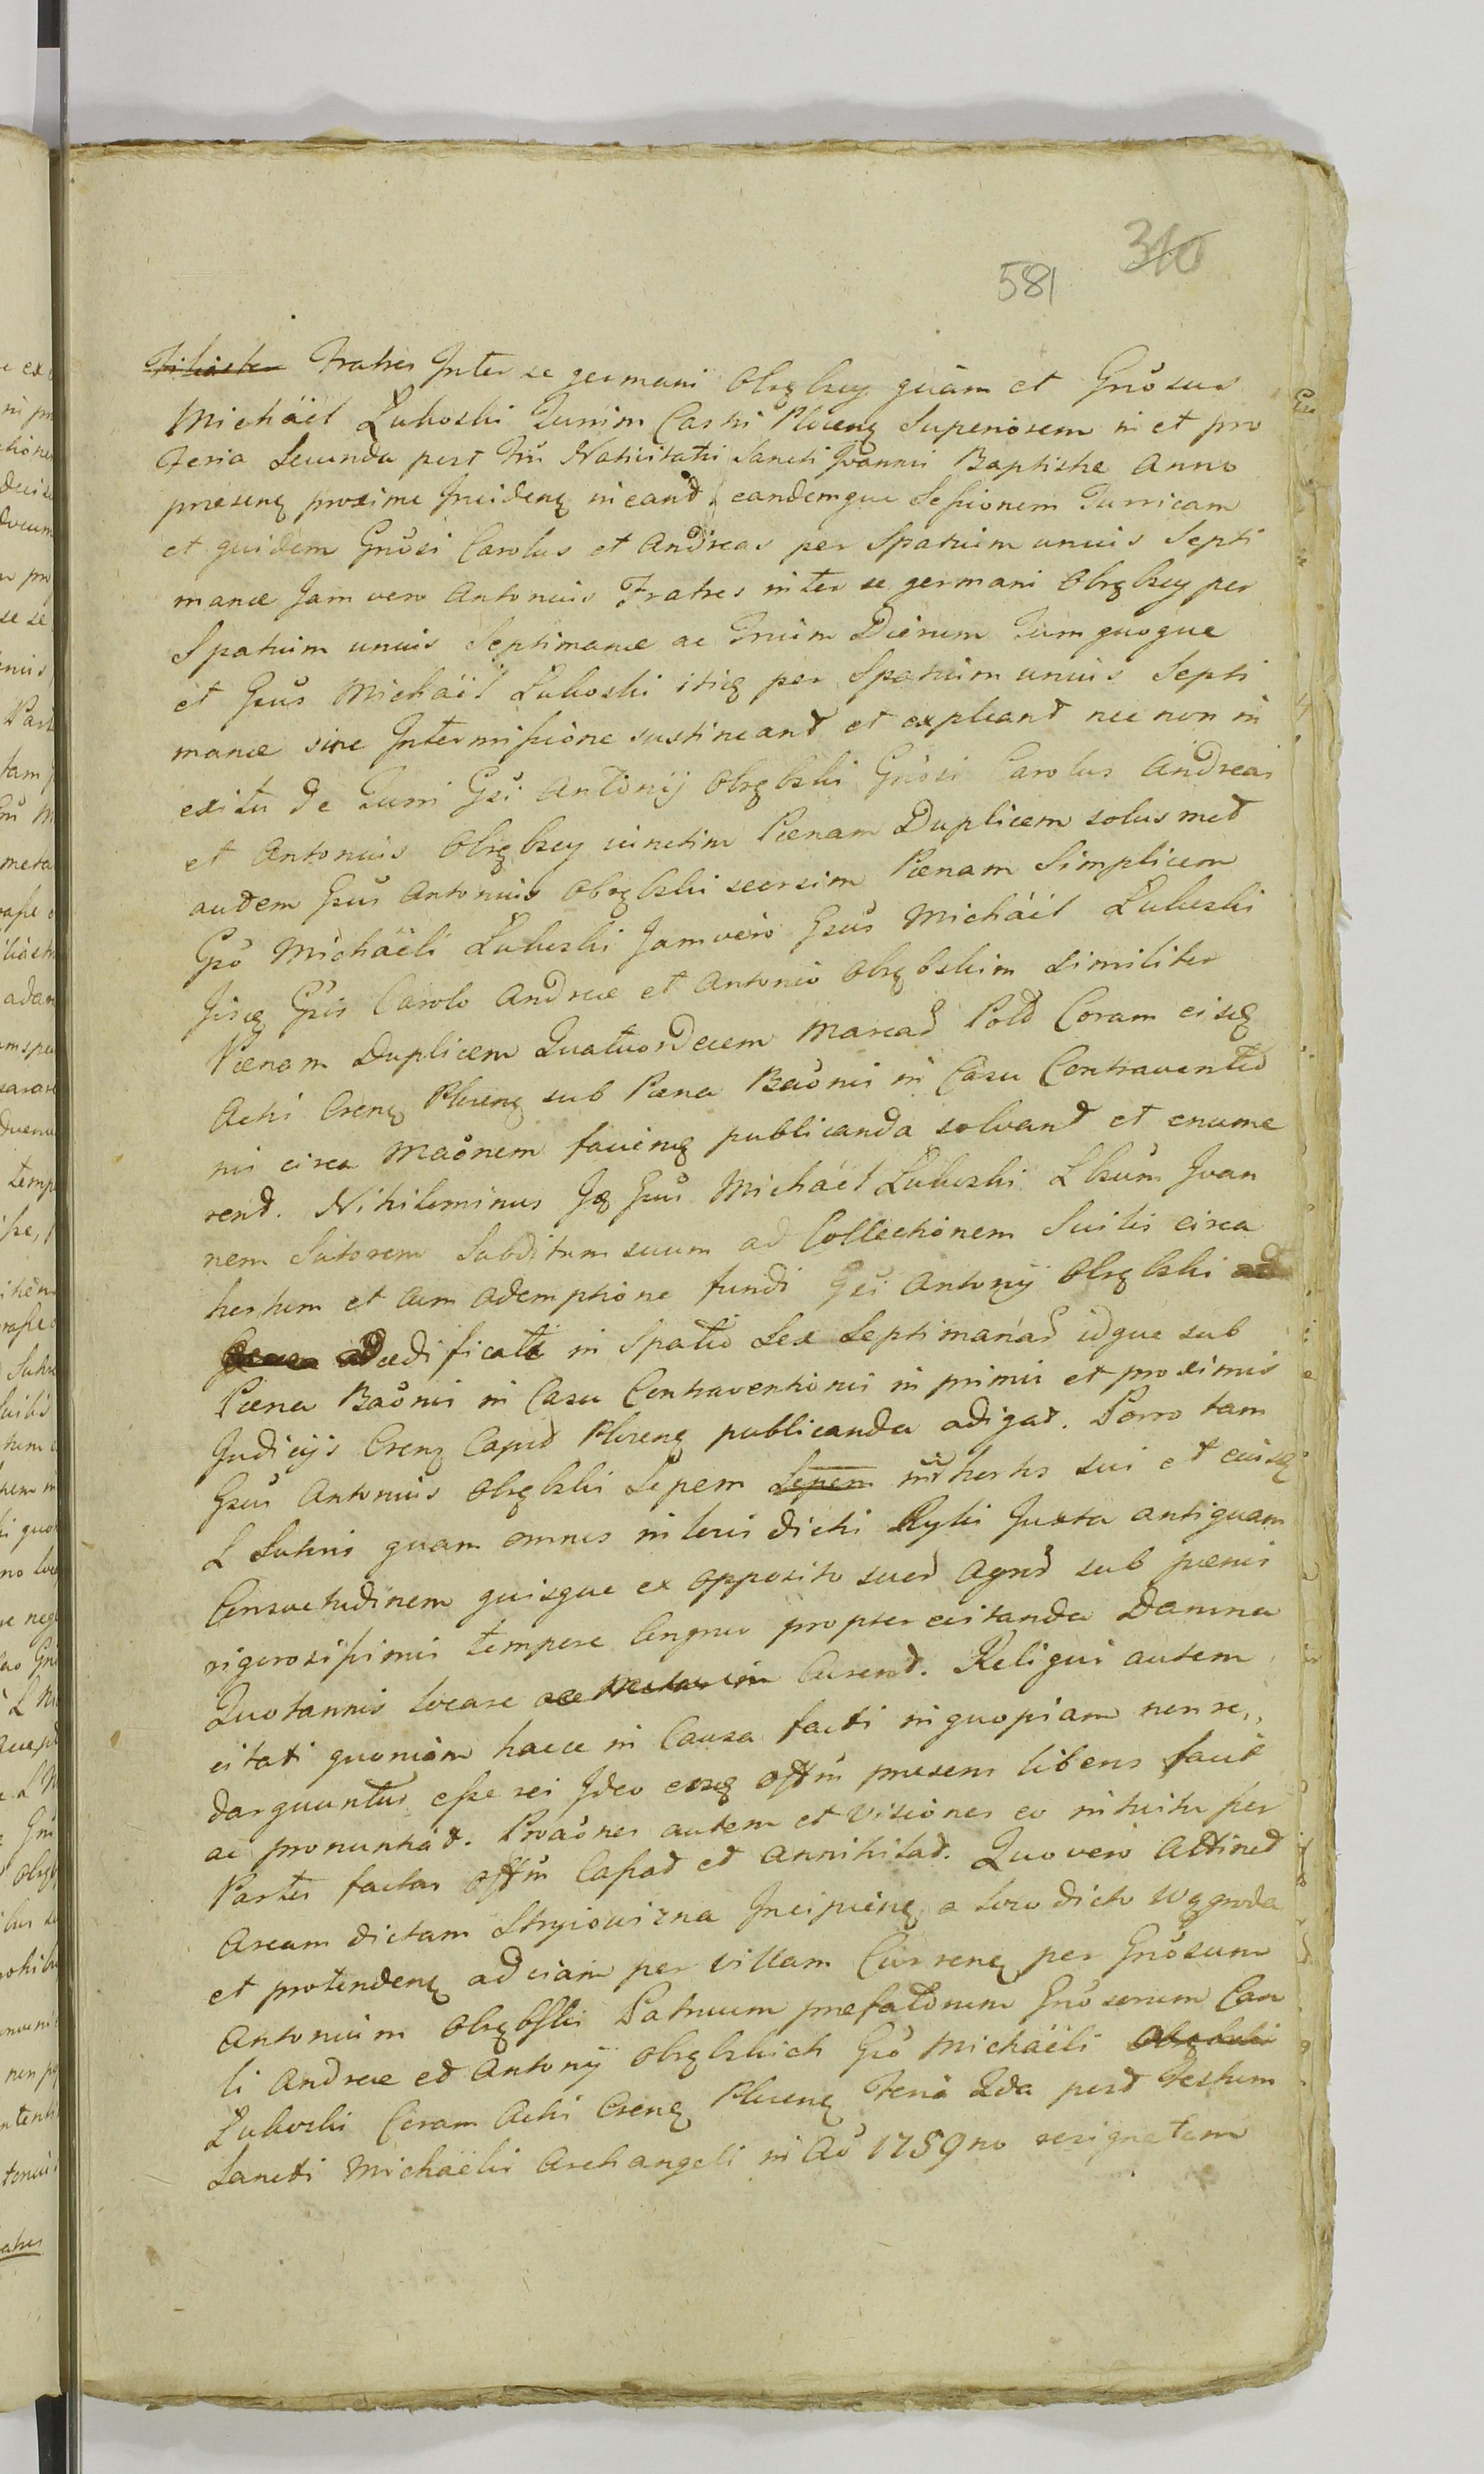 310
581
Fratres Inter se germani Obrębscy quam et Gnosus
Michäel Łuboski Turrim Castri Plocen Superiorem in et pro
Feria Secunda post Fm Nativitatis Sancti Joannis Baptistæ Anno
præsen proxime Inciden ineand eandemque Sessionem Turricam
et quidem Gnosi Carolus et Andreas per Spatium unius Septi
manæ Jam vero Antonius Fratres inter se germani Obrębscy per
Spatium unius Septimanæ ac Trium Dierum Tum quoque
et Gsus Michäel Łuboski itiq per Spatium unius Septi
manæ sine Intermissione sustineant et expleant nec non in
exitu de Turri Gsi Antonij Obrębski Gnosi Carolus Andreas
et Antonius Obrębscy iunctim Pænam Duplicem solus met
autem Gsus Antonius Obrębski seorsim Pænam Simplicem
Gso Michäeli Łuboski Jam vero Gsus Michäel Łuboski
Jisq Gsis Carolo Andreæ et Antonio Obrębskim similiter
Pænam Duplicem Quatuordecem Marcas Pold Coram eisq
Actis Cren Plocen sub Pæna Baonis in Casu Contraventio
nis circa Maonem facien publicanda solvant et enume
rent. Nihilominus Gsus Michäel Łuboski L Joan
nem Sutorem Subditum suum ad Collectionem Suilis circa
hortum et cum ademptione fundi Gsi Antonij Obrębski
ædificati in Spatio Sex Septimanas idque sub
Pæna Baonis in Casu Contraventionis in primis et proximis
Judicijs Cren Capit Plocen publicanda adigat. Porro tam
Gsus Antonius Obrębski Sepem Sepem int hortos sui et eiusq
L Sutoris quam omnes in locis dictis Rytki Juxta antiquam
Consuetudinem quisque ex opposito suor Agror sub pænis
rigorosissimis tempore Congruo propter evitanda Damna
Quotannis locare Curent. Reliqui autem
citati quoniam hacce in Causa facti in quopiam non re,,
darguuntur esse rei Ideo eosq Offm præsens liberos facit
ac pronuntiat. Proaones autem et Visiones eo intuitu per
Partes factas Offm Cassat et Annihilat. Quo vero Attinet
Aream dictam Stryiowizna Incipien a loco dicto Wągroda
et protenden ad viam per villam Curren per Gnosum
Antonium Obrębski Patruum præfatorum Gnosorum Caro
li Andreæ et Antonij Obrębskich Gso Michäeli Obrębski
Łuboski Coram Actis Cren Plocen Feria 2da post Festum
Sancti Michäelis Archangeli in Ao 1759no resignatam